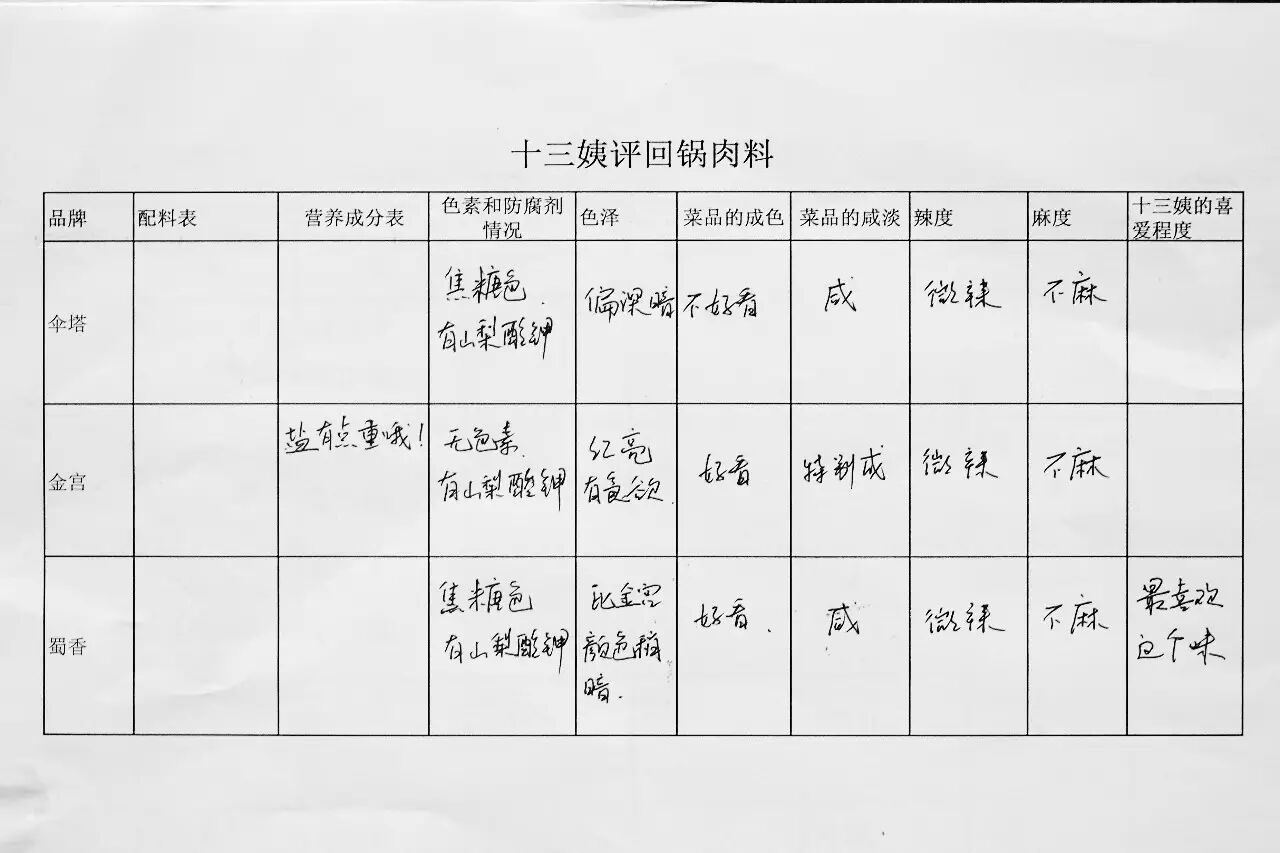 十三姨评回锅肉料
品牌 配料表 营养成分表 色素和防腐剂情况 色泽 菜品的成色 菜品的咸淡 辣度 麻度 十三姨的喜爱程度
伞塔 焦糖色. 有山梨酸钾 偏深暗 不好看 咸 微辣 不麻
金宫 盐有点重哦! 无色素. 有山梨酸钾 红亮有食欲. 好看 特别咸 微辣 不麻
蜀香 焦糖色 有山梨酸钾 比金宫颜色稍暗. 好看. 咸 微辣 不麻 最喜欢这个味